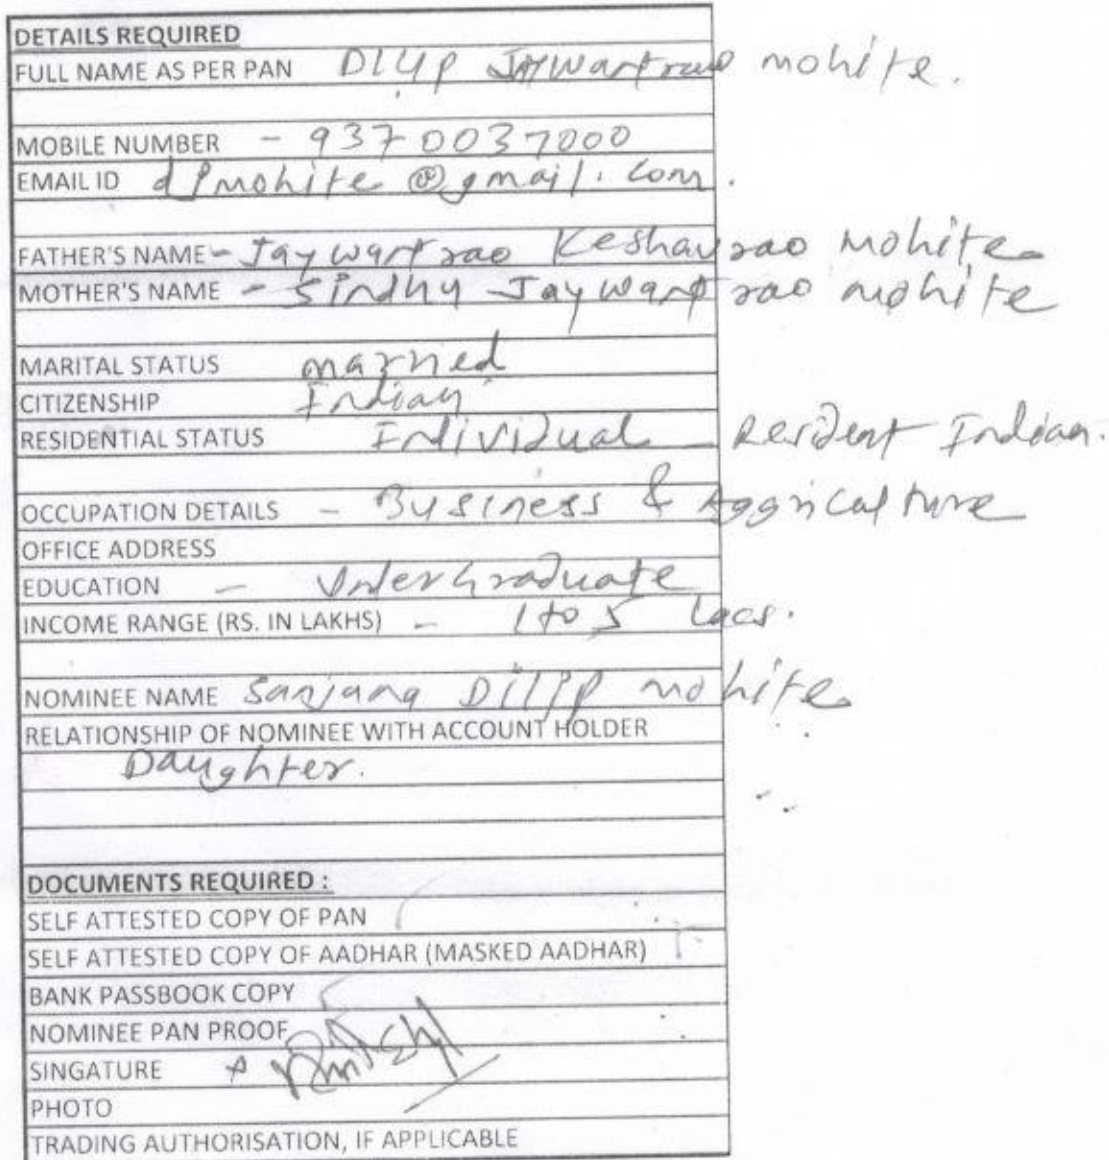 DETAILS REQUIRED
FULL NAME AS PER PAN Dilip Jaywantrao mohite.
MOBILE NUMBER - 9370037000
EMAIL ID dpmohite@gmail.com.
FATHER'S NAME - Jaywantrao Keshavrao Mohite
MOTHER'S NAME - Sindhu Jaywantrao mohite
MARITAL STATUS married
CITIZENSHIP Indian
RESIDENTIAL STATUS Individual - Resident Indian.
OCCUPATION DETAILS - Business & Aggriculture
OFFICE ADDRESS
EDUCATION - UnderGraduate
INCOME RANGE (RS. IN LAKHS) - 1 to 5 Lacs.
NOMINEE NAME Sanjana Dilip mohite
RELATIONSHIP OF NOMINEE WITH ACCOUNT HOLDER
Daughter.
DOCUMENTS REQUIRED :
SELF ATTESTED COPY OF PAN
SELF ATTESTED COPY OF AADHAR (MASKED AADHAR)
BANK PASSBOOK COPY
NOMINEE PAN PROOF
SINGATURE
PHOTO
TRADING AUTHORISATION, IF APPLICABLE